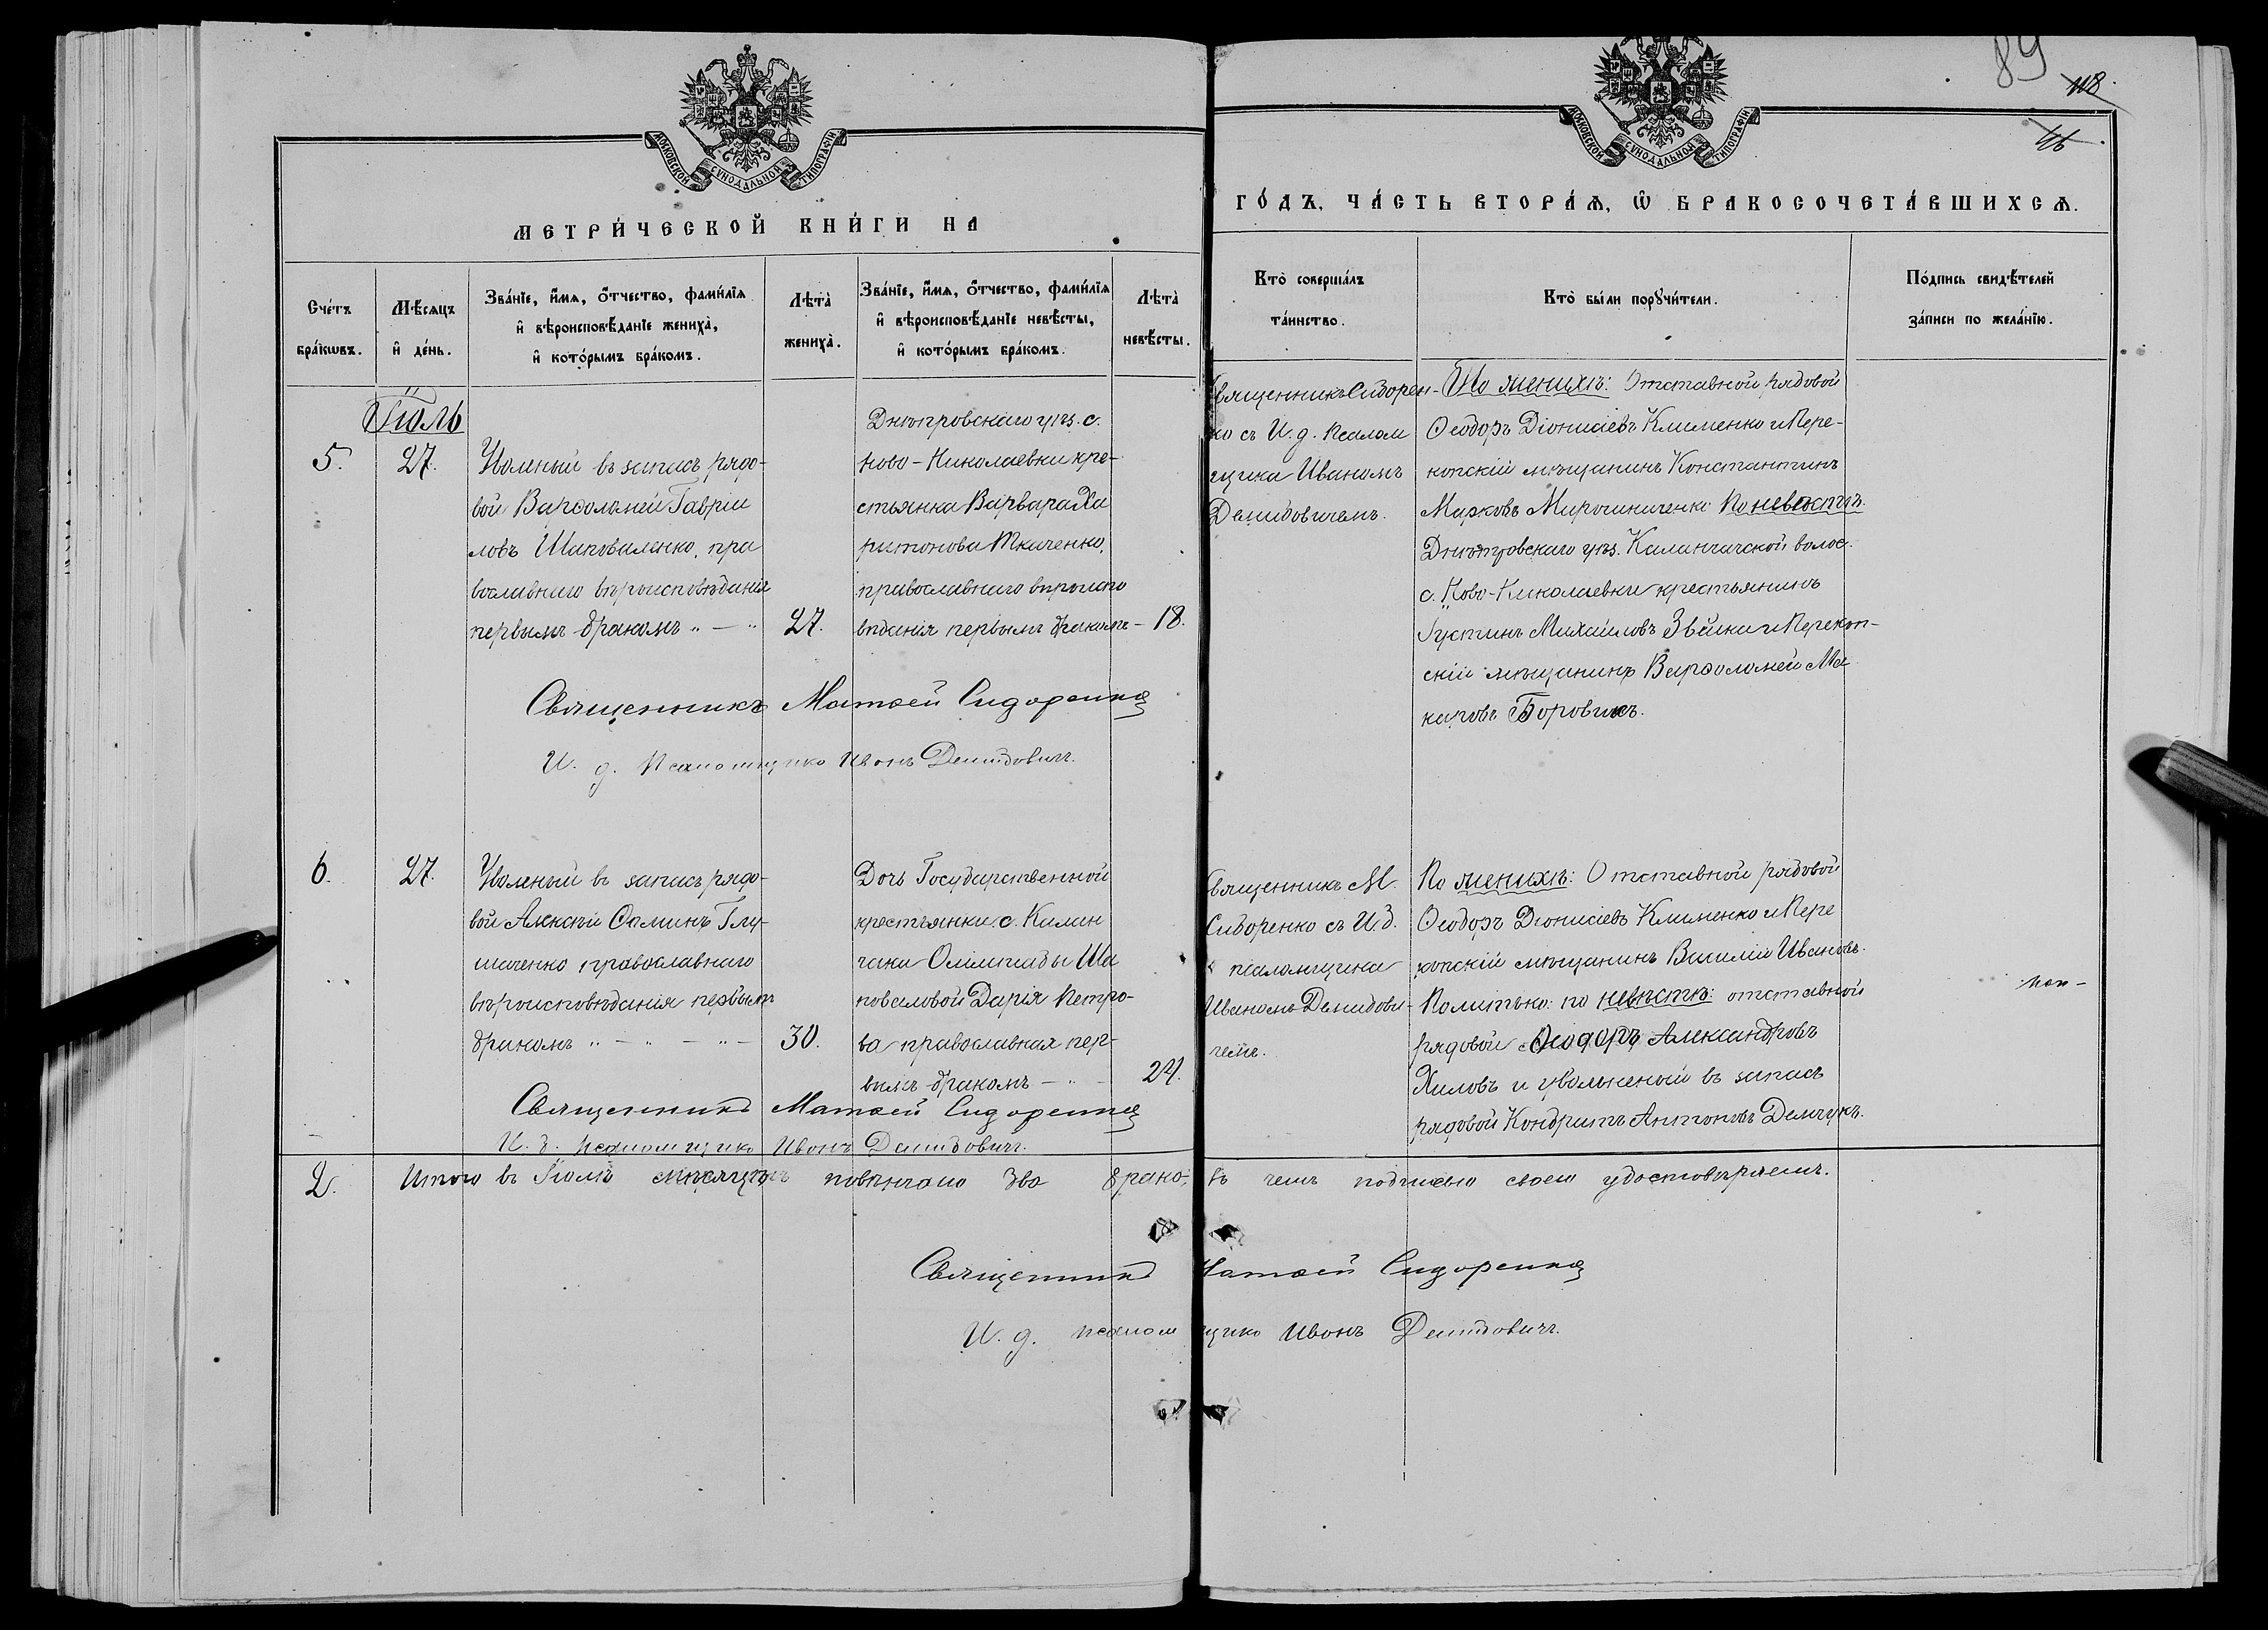 89
118.
МОСКОВСКОЙ СѴНОДАЛЬНОЙ ТИПОГРАФІИ
МОСКОВСКОЙ СѴНОДАЛЬНОЙ ТИПОГРАФІИ
МЕТРИ́ЧЕСКОЙ КНИ́ГИ НА
ГО́ДЪ, ЧА́СТЬ ВТОРА́Ѧ, Ѡ҆ БРАКОСОЧЕТА́ВШИХСѦ.
Сче́тъ
бра́кѡвъ.
Мѣ́сѧцъ
и҆ де́нь.
Зва́нїе, и҆́мѧ, о҆́тчество, фами́лїѧ
и҆ вѣроисповѣ́данїе жениха̀,
и҆ кото́рымъ бра́комъ.
Лѣта̀
жениха̀.
Зва́нїе, и҆́мѧ, о҆́тчество, фами́лїѧ
и҆ вѣроисповѣ́данїе невѣ́сты,
и҆ кото́рымъ бра́комъ.
Лѣта̀
невѣ́сты.
Кто̀ соверша́лъ
та́инство.
Кто̀ бы́ли порꙋчи́тели.
По́дпись свидѣ́телей
за́писи по жела́нїю.
Іюль
5.
27.
Уволеный въ запасъ рядо-
вой Варѳоломей Гавріи
ловъ Шаповаленко, пра
вославнаго вѣроисповѣданія
первымъ бракомъ „ — „
27.
Днѣпровскаго уѣз. с.
Ново-Николаевки кре-
стьянка Варвара Ха
ритонова Ткаченко,
православнаго вѣроиспо
вѣданія первымъ бракомъ —
18.
Священникъ Сидорен-
ко съ И. д. псалом
щика Иваномъ
Демидовичемъ.
По женихѣ: Отставной рядовой
Ѳеодоръ Діонисіевъ Клименко и Пере-
копскій мѣщанинъ Константинъ
Марковъ Мирошниченко По невѣстѣ.
Днѣпровскаго уѣз. Каланчакской волос.
с. Ново-Николаевки крестьянинъ
Іустинъ Михайловъ и Перекоп-
скій мѣщанинъ Варѳоломей Ма
каровъ Боровикъ.
Священникъ Матѳей Сидоренко
И. д. Псаломщика Иванъ Демидовичъ.
6.
27.
Уволеный въ запасъ рядо-
вой Алексѣй Ѳоминъ Глу-
шаченко православнаго
вѣроисповѣданія первымъ
бракомъ „ — „ — „ —
30.
Дочь Государственной
крестьянки с. Калан
чака Олимпіады Ша
поваловой Дарія Петро-
ва православная пер-
вымъ бракомъ — „ —
24.
Священникъ М.
Сидоренко съ И. д.
псаломщика
Иваномъ Демидови-
чемъ.
По женихѣ: Отставной рядовой
Ѳеодоръ Діонисіевъ Клименко и Пере
копскій мѣщанинъ Василій Ивановъ
Политько: по невѣстѣ: отставной
рядовой Ѳеодоръ Александровъ
Хиловъ и увольненый въ запасъ
рядовой Кондратъ Антоновъ Демчукъ.
Священникъ Матѳей Сидоренко
И. д. Псаломщика Иванъ Демидовичъ.
2.
Итого въ Іюлѣ мѣсяцѣ повѣнчано два брака, въ чемъ подписью своею удостовѣряемъ.
Священникъ Матѳей Сидоренко
И. д. псаломщика Иванъ Демидовичъ.